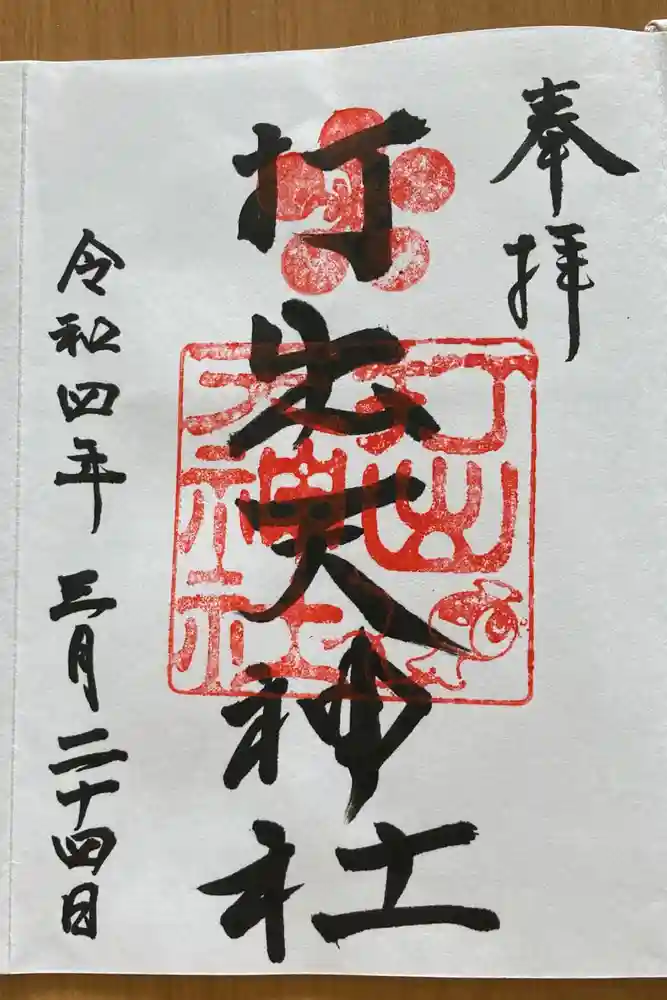 奉拝
打出天神社
打出
天神社
令和四年三月二十四日